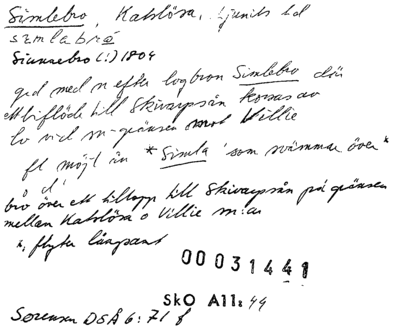 Simlebro, Katslösa, Ljunits hd
sɛmlabro
Simmebro (:) 1804
gd med n efter logbron Simlebro där
ett biflöde till Skivarpsån korsas av
lv vid sn-gränsen mot Villie
fl möjl ån *Simla 'som svämmar över'
bro över ett tillopp till Skivarpsån på gränsen
mellan Katslösa o Villie sn:ar
flyter långsamt
00031441
SkO A11: 44
Sorensen DSÅ 6: 71 f